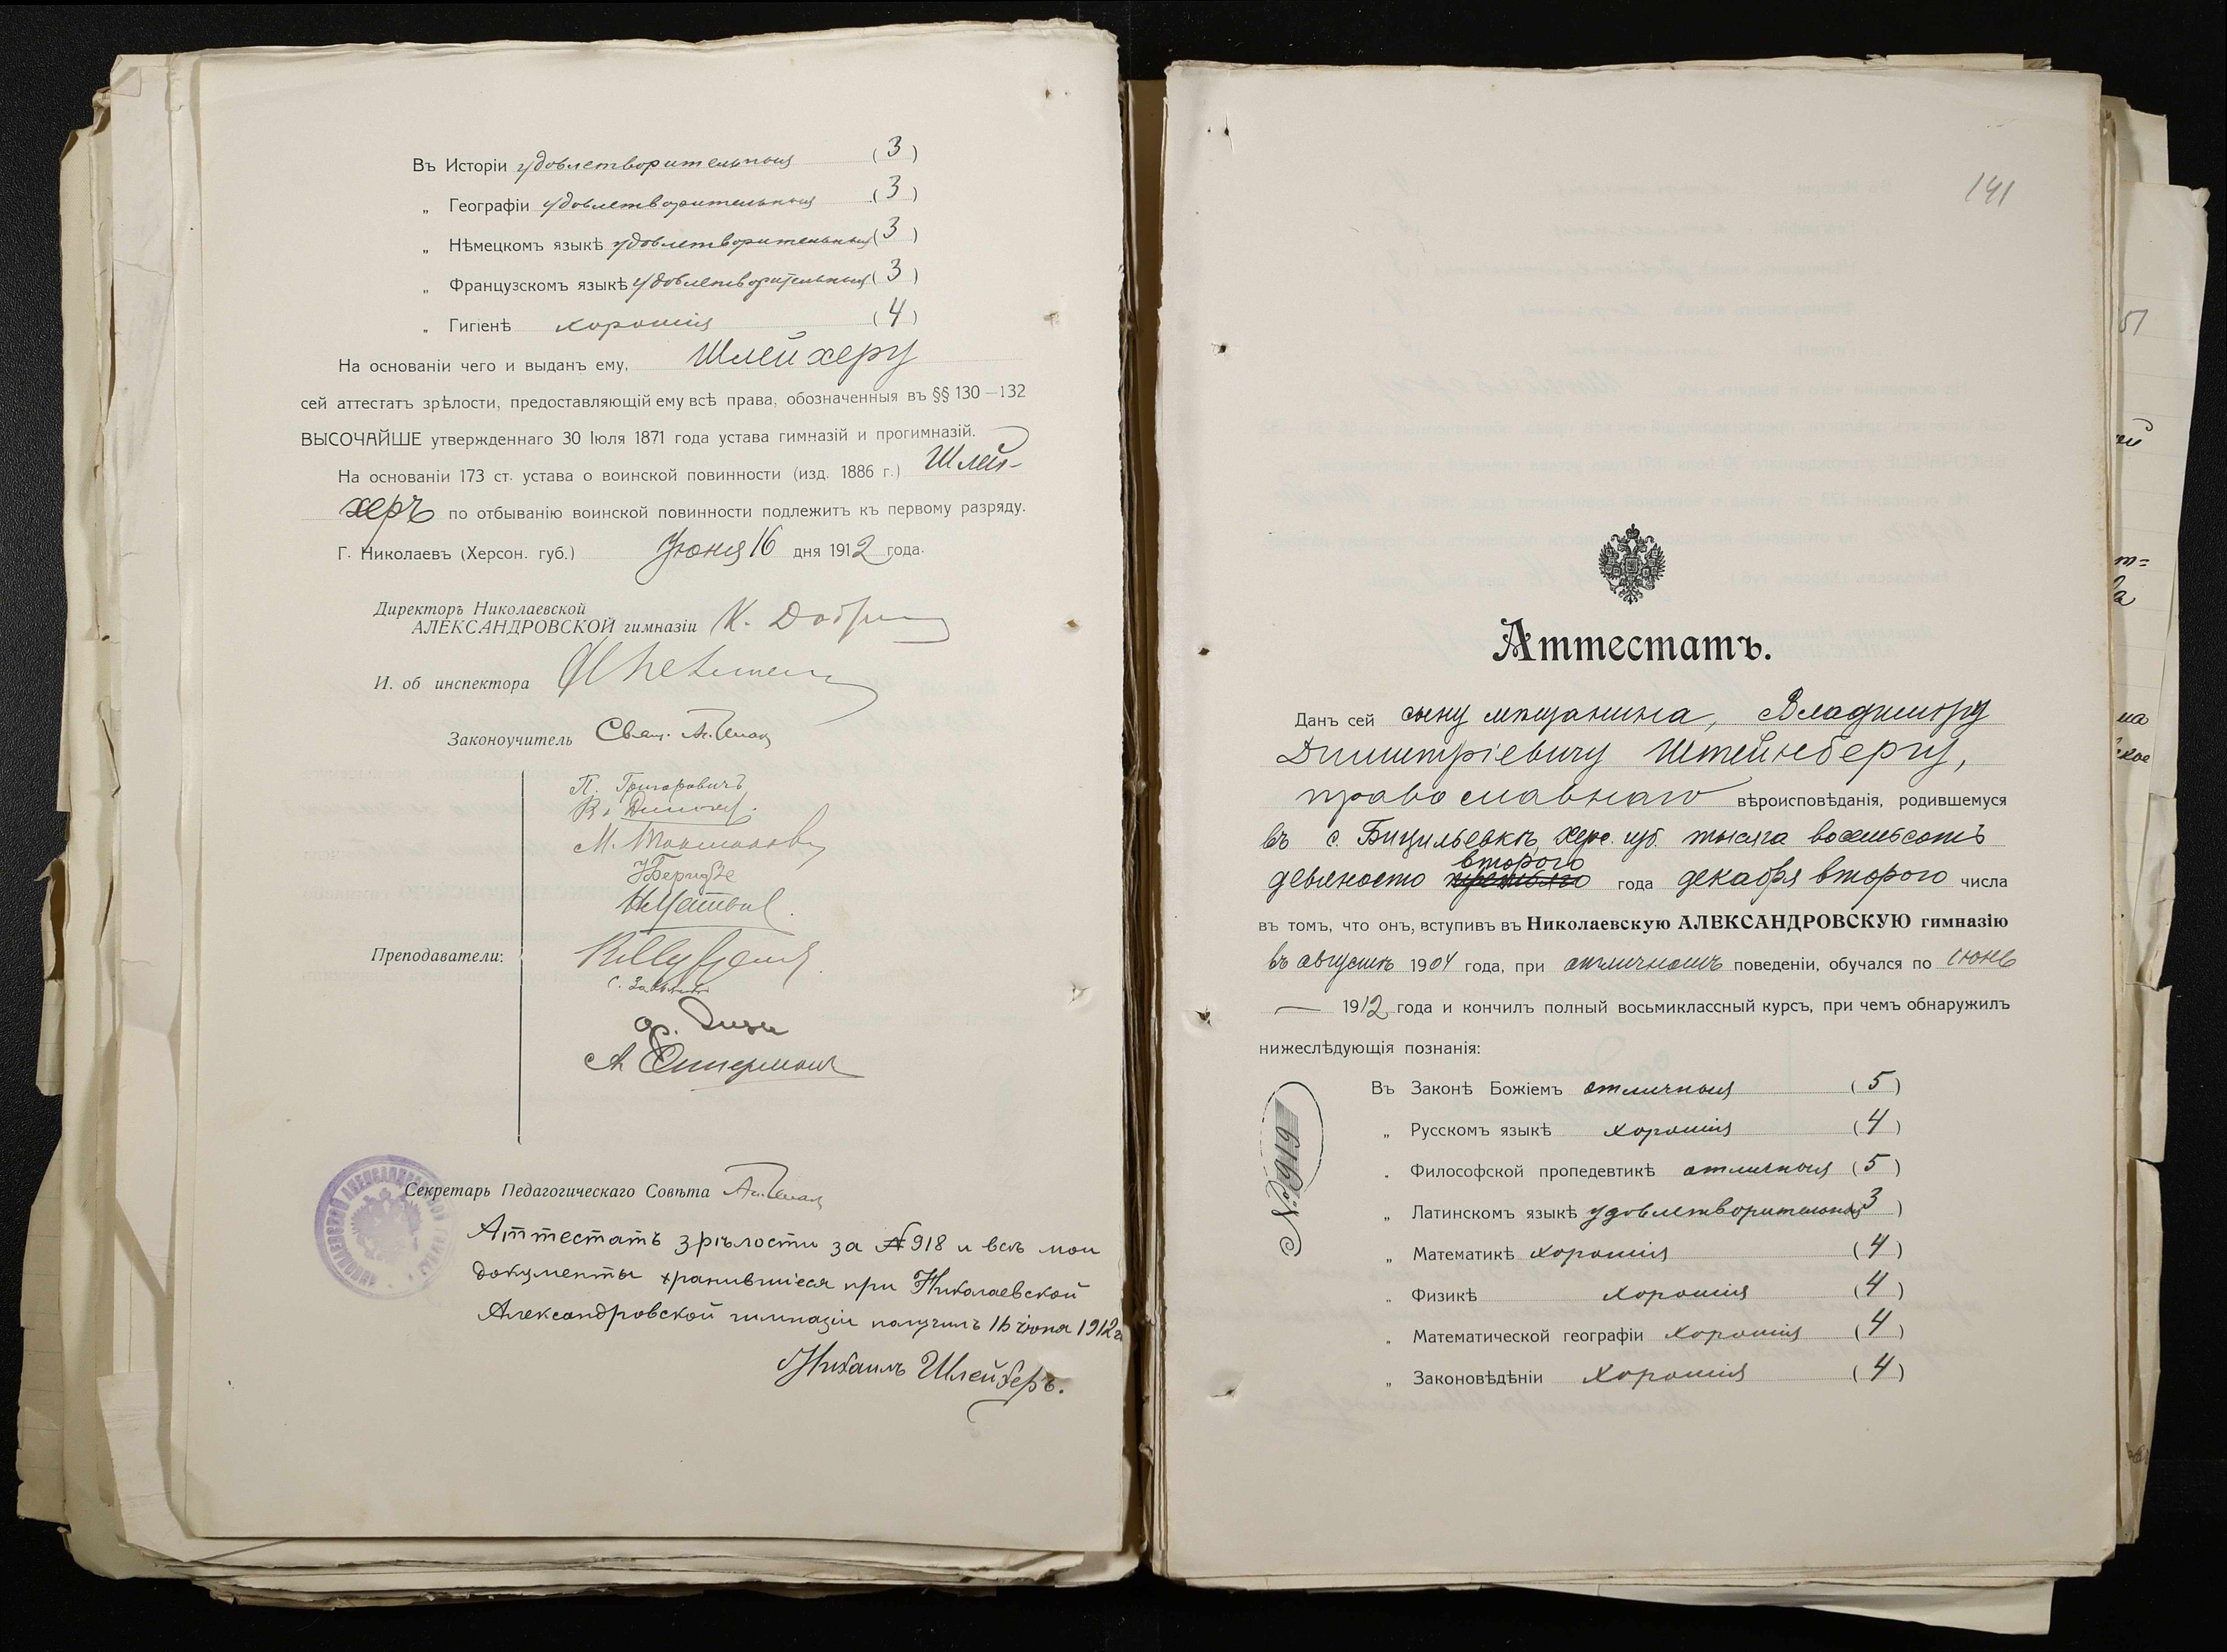 Въ Исторіи удовлетворительныя (3)
„ Географіи удовлетворительныя (3)
„ Нѣмецкомъ языкѣ удовлетворительныя (3)
„ Французскомъ языкѣ удовлетворительныя (3)
„ Гигіенѣ хорошія (4)
На основаніи чего и выданъ ему, Шлейхеру
сей аттестатъ зрѣлости, предоставляющій ему всѣ права, обозначенныя въ §§ 130—132
ВЫСОЧАЙШЕ утвержденнаго 30 Іюля 1871 года устава гимназій и прогимназій.
На основаніи 173 ст. устава о воинской повинности (изд. 1886 г.) Шлей-
херъ по отбыванію воинской повинности подлежитъ къ первому разряду.
Г. Николаевъ (Херсон. губ.) Іюня 16 дня 1912 года.
Директоръ Николаевской
АЛЕКСАНДРОВСКОЙ гимназіи К.
И. об инспектора
Законоучитель Свящ.
П. Григоровичъ
Преподаватели:
Секретарь Педагогическаго Совѣта
Аттестатъ зрѣлости за № 918 и всѣ мои
документы хранившіеся при Николаевской
Александровской гимназіи получилъ 16 іюня 1912 г.
Михаилъ Шлейхеръ.
141
Аттестатъ.
Данъ сей сыну мѣщанина, Владиміру
Димитріевичу Штейнбергу,
православнаго вѣроисповѣданія, родившемуся
въ с. Херс. губ. тысяча восемьсотъ
девяносто второго года декабря второго числа
въ томъ, что онъ, вступивъ въ Николаевскую АЛЕКСАНДРОВСКУЮ гимназію
въ августѣ 1904 года, при отличномъ поведеніи, обучался по іюнь
— 1912 года и кончилъ полный восьмиклассный курсъ, при чемъ обнаружилъ
нижеслѣдующія познанія:
№ 919
Въ Законѣ Божіемъ отличныя (5)
„ Русскомъ языкѣ хорошія (4)
„ Философской пропедевтикѣ отличныя (5)
„ Латинскомъ языкѣ удовлетворительныя (3)
„ Математикѣ хорошія (4)
„ Физикѣ хорошія (4)
„ Математической географіи хорошія (4)
„ Законовѣдѣніи хорошія (4)